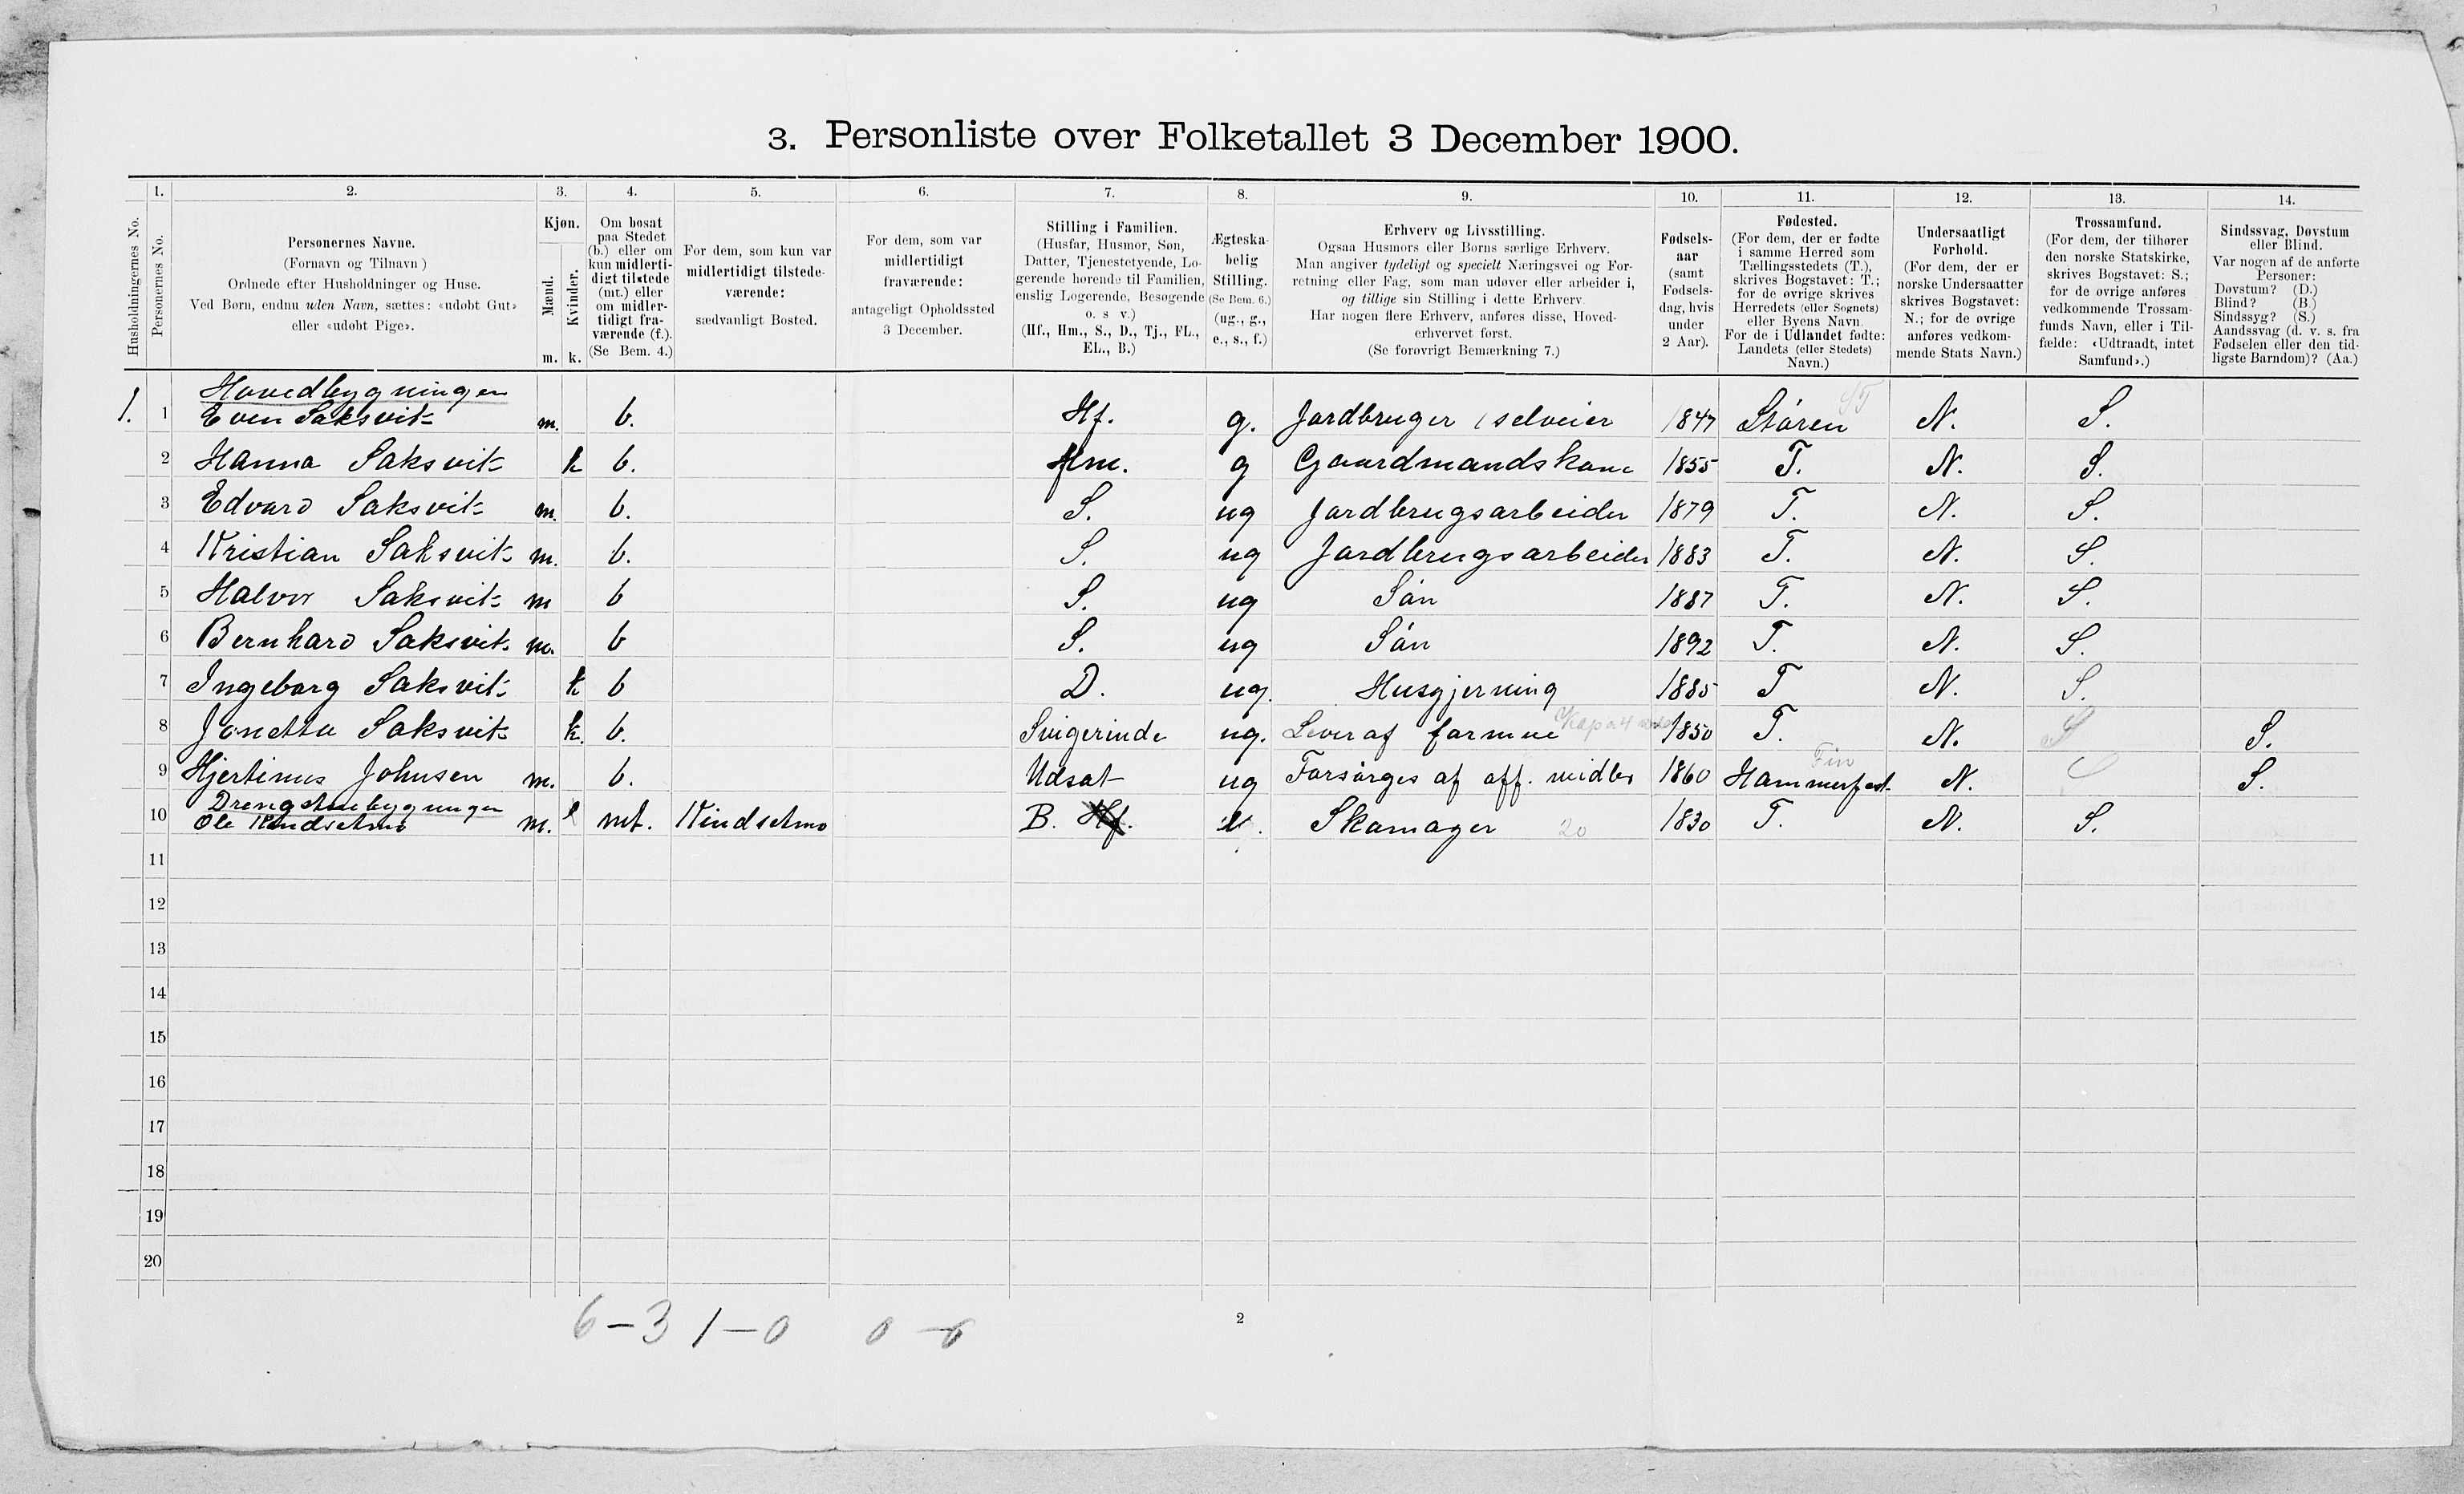 3. Personliste over Folketallet 3 December 1900.
1. 2. 3. 4. 5. 6. 7. 8. 9. 10. 11. 12. 13. 14.
Husholdningernes No.
Personernes No.
Personernes Navne.
(Fornavn og Tilnavn)
Ordnede efter Husholdninger og Huse.
Ved Børn, endnu uden Navn, sættes: «udøbt Gut»
eller «udøbt Pige».
Kjøn.
Mænd.
Kvinder.
m. k.
Om bosat
paa Stedet
(b.) eller om
kun midlerti-
digt tilstede
(mt.) eller
om midler-
tidigt fra-
værende (f.).
(Se Bem. 4.)
For dem, som kun var
midlertidigt tilstede-
værende:
sædvanligt Bosted.
For dem, som var
midlertidigt
fraværende:
antageligt Opholdssted
3 December.
Stilling i Familien.
(Husfar, Husmor, Søn,
Datter, Tjenestetyende, Lo-
gerende hørende til Familien,
enslig Logerende, Besøgende
o. s v.)
(Hf., Hm., S., D., Tj., FL.,
EL., B.)
Ægteska-
belig
Stilling.
(Se Bem. 6.)
(ug., g.,
e., s., f.)
Erhverv og Livsstilling.
Ogsaa Husmors eller Børns særlige Erhverv.
Man angiver tydeligt og specielt Næringsvei og For-
retning eller Fag, som man udøver eller arbeider i,
og tillige sin Stilling i dette Erhverv.
Har nogen flere Erhverv, anføres disse, Hoved-
erhvervet først.
(Se forøvrigt Bemærkning 7.)
Fødsels-
aar
(samt
Fødsels-
dag, hvis
under
2 Aar).
Fødested.
(For dem, der er fødte
i samme Herred som
Tællingsstedets (T.),
skrives Bogstavet: T.;
for de øvrige skrives
Herredets (eller Sognets)
eller Byens Navn.
For de i Udlandet fødte:
Landets (eller Stedets)
Navn.)
Undersaatligt
Forhold.
(For dem, der er
norske Undersaatter
skrives Bogstavet:
N.; for de øvrige
anføres vedkom-
mende Stats Navn.)
Trossamfund.
(For dem, der tilhører
den norske Statskirke,
skrives Bogstavet: S.;
for de øvrige anføres
vedkommende Trossam-
funds Navn, eller i Til-
fælde: «Udtraadt, intet
Samfund».)
Sindssvag, Døvstum
eller Blind.
Var nogen af de anførte
Personer:
Døvstum? (D.)
Blind? (B.)
Sindssyg? (S.)
Aandssvag (d. v. s. fra
Fødselen eller den tid-
ligste Barndom)? (Aa.)
Hovedbygningen
1. 1 Even Saksvik m. b. Hf. g. Jordbruger selveier 1847 Støren St N. S.
2 Hanna Saksvik k b. Hm. g Gaardmandskone 1855 T. N. S.
3 Edvard Saksvik m. b. S. ug Jordbrugsarbeider 1879 T. N. S.
4 Kristian Saksvik m. b. S. ug Jordbrugsarbeider 1883 T. N. S.
5 Halvor Saksvik m b S. ug Søn 1887 T. N. S.
6 Bernhard Saksvik m. b S. ug Søn 1892 T. N. S.
7 Ingeborg Saksvik k b D. ug. Husgjerning 1885 T N. S.
8 Jonetta Saksvik k. b. Svigerinde ug. Lever af formue 1850 T. N. S S.
9 Hjertinus Johnsen m. b. Udsat ug Forsørges af off. midler 1860 Hammerfest Fin N. S S.
Drengstuebygningen
10 Ole Kindsetmo m. mt. Kindsetmo B. Hf. Skomager 20 1830 T. N. S.
11
12
13
14
15
16
17
18
19
20
6-3 1-0 0-0
2